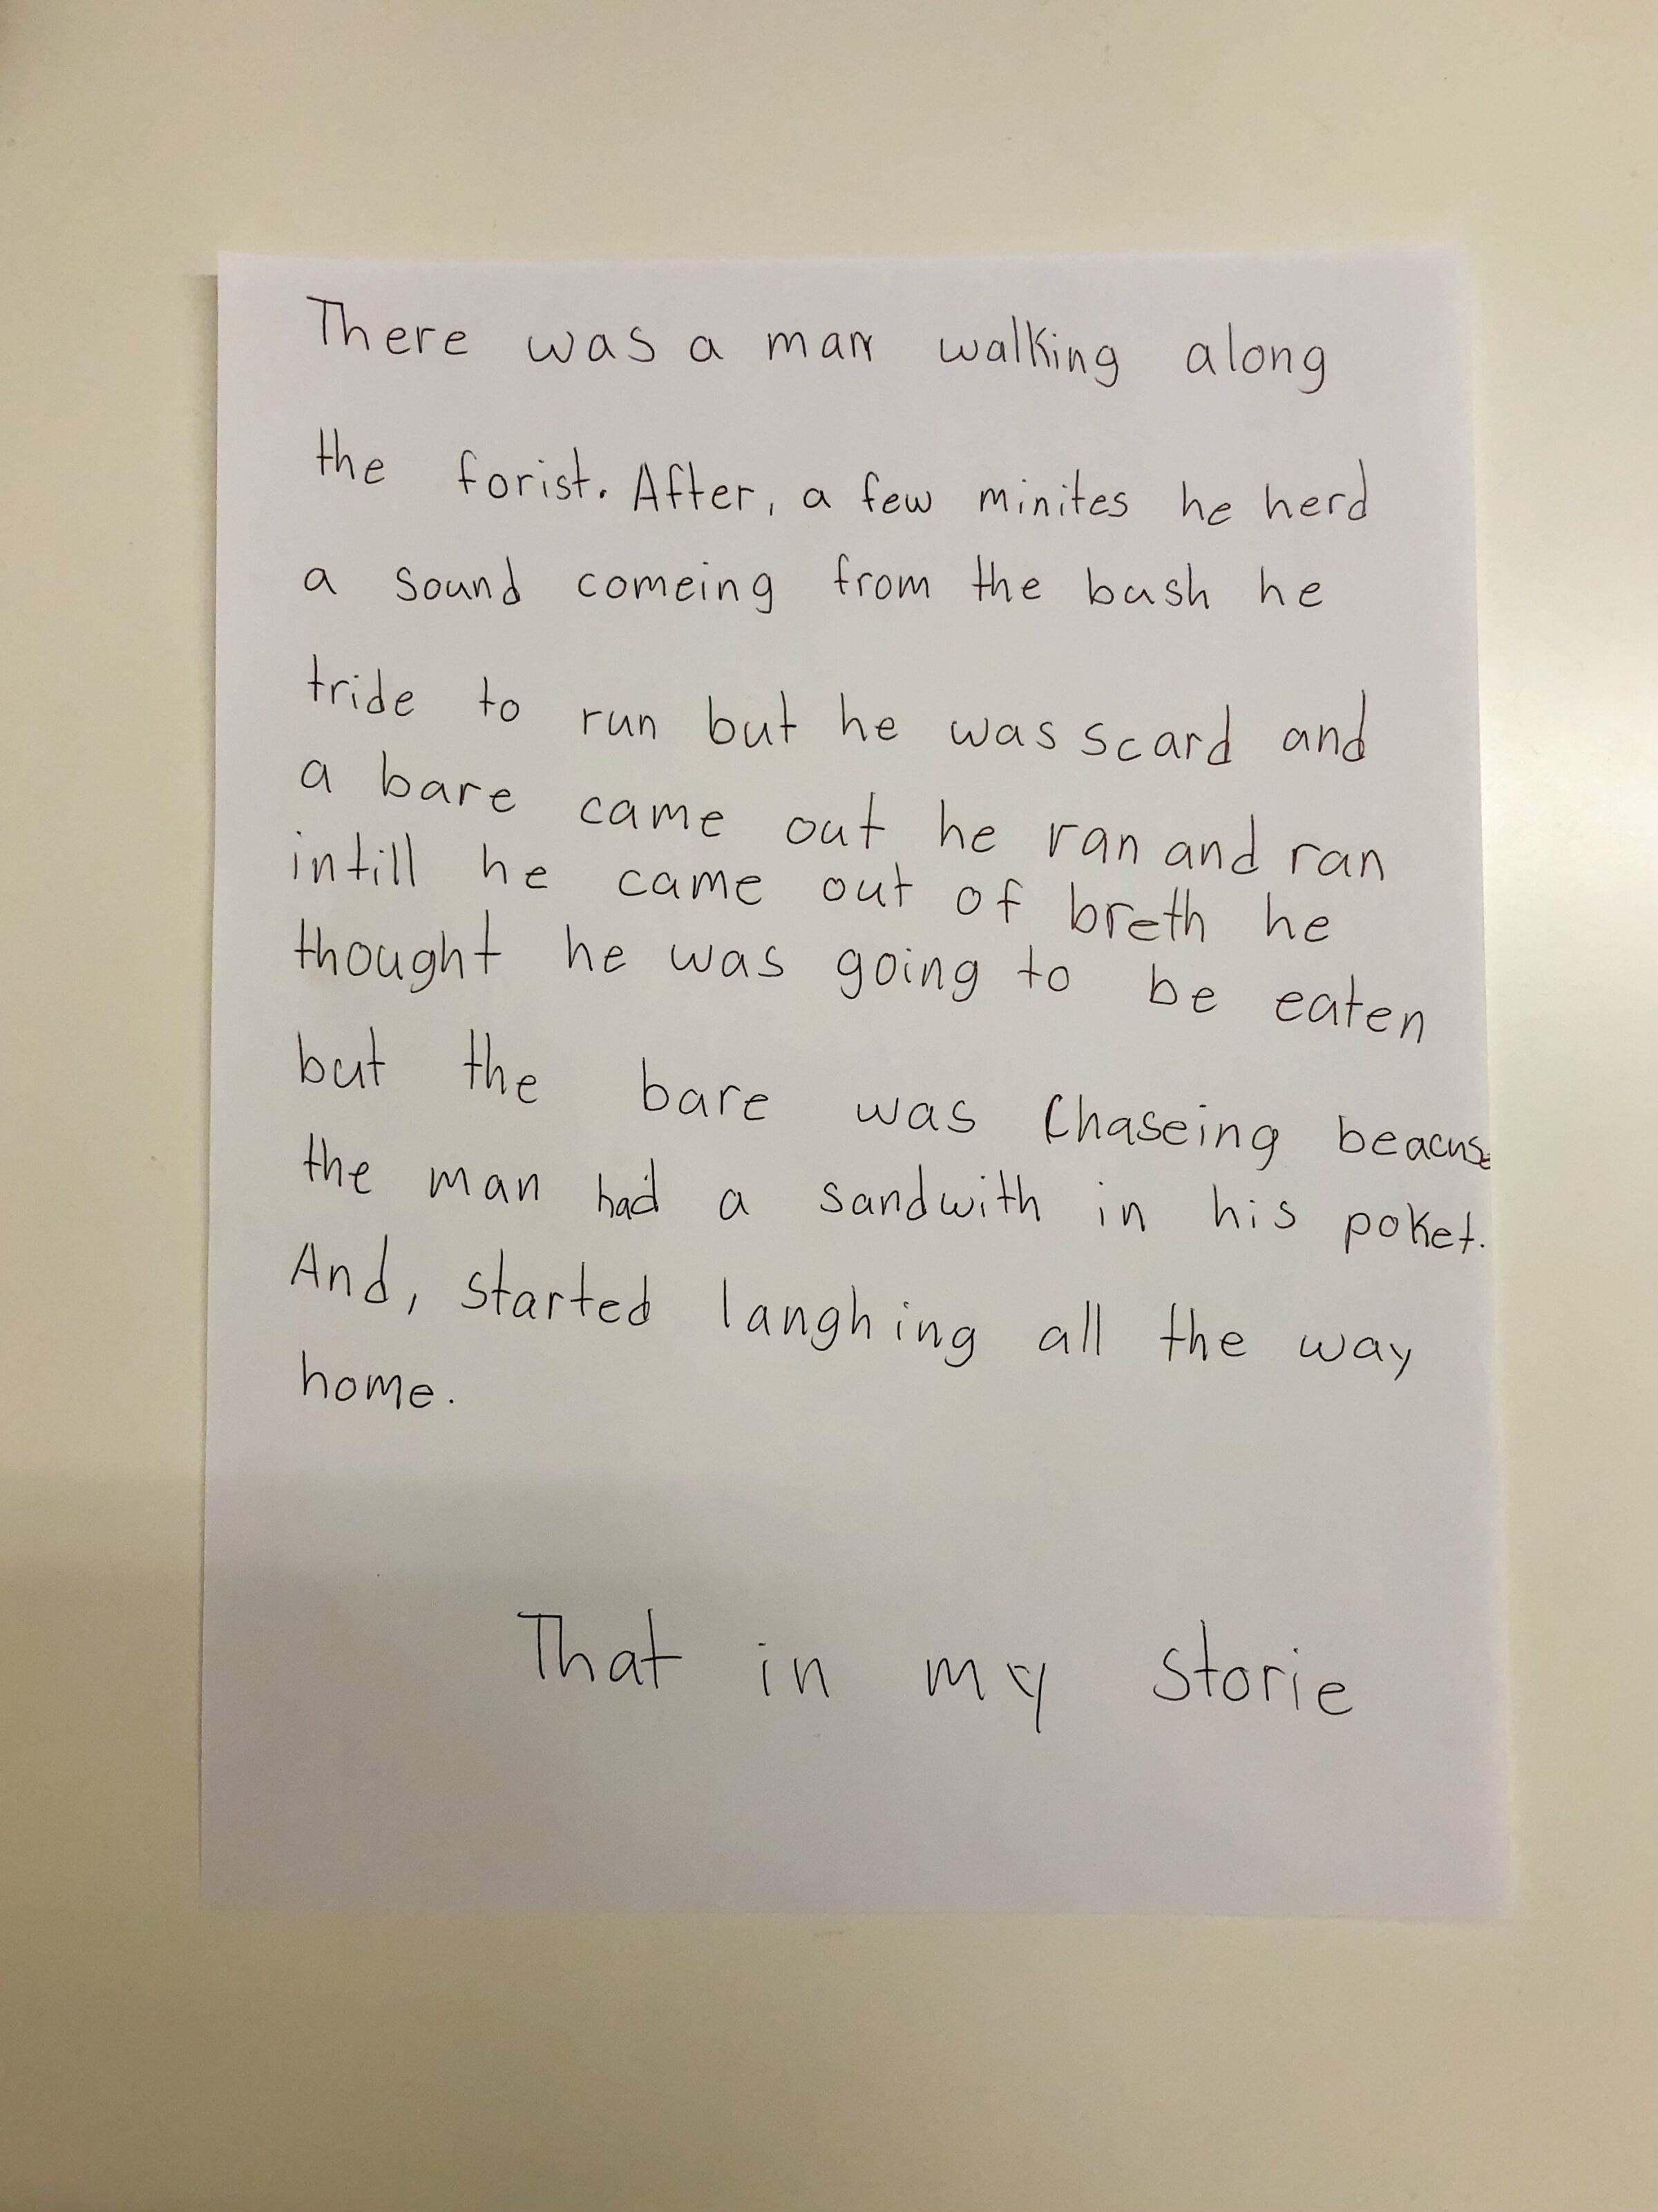 There was a man walking along
the forist. After, a few minites he herd
a sound comeing from the bush he
tride to run but he was scard and
a bare came out he ran and ran
intill he came out of breth he
thought he was going to be eaten
but the bare was Chaseing beacuse
the man had a sandwith in his poket.
And, started laughing all the way
home.
That in my storie